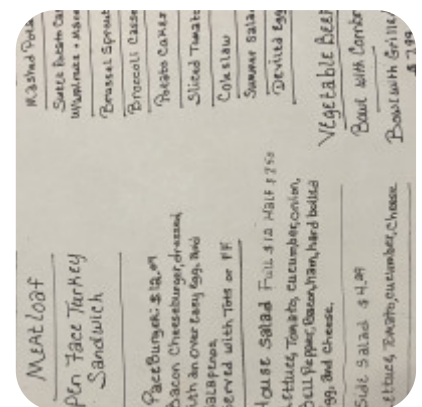 Meatloaf
Open Face Turkey
Sandwich
PaceBurger: $12.99
Bacon Cheeseburger, dressed,
with an over easy Egg, and
Jalapenos
Served with Tots or FF
House Salad Full $12 Half $
Lettuce, Tomato, cucumber, onion,
Bell Pepper, Bacon, ham, hard boiled
Egg, and cheese.
Side Salad $4.99
Lettuce, Tomato, cucumber, cheese
Mashed
Sweet Potato
w/
Brussel Sprout
Broccoli Casse
Potato Cakes
Sliced Tomato
Coleslaw
Summer Salad
Deviled Egg
Vegetable Beef
Bowl with Cornbr
Bowl with Grille
$7.99